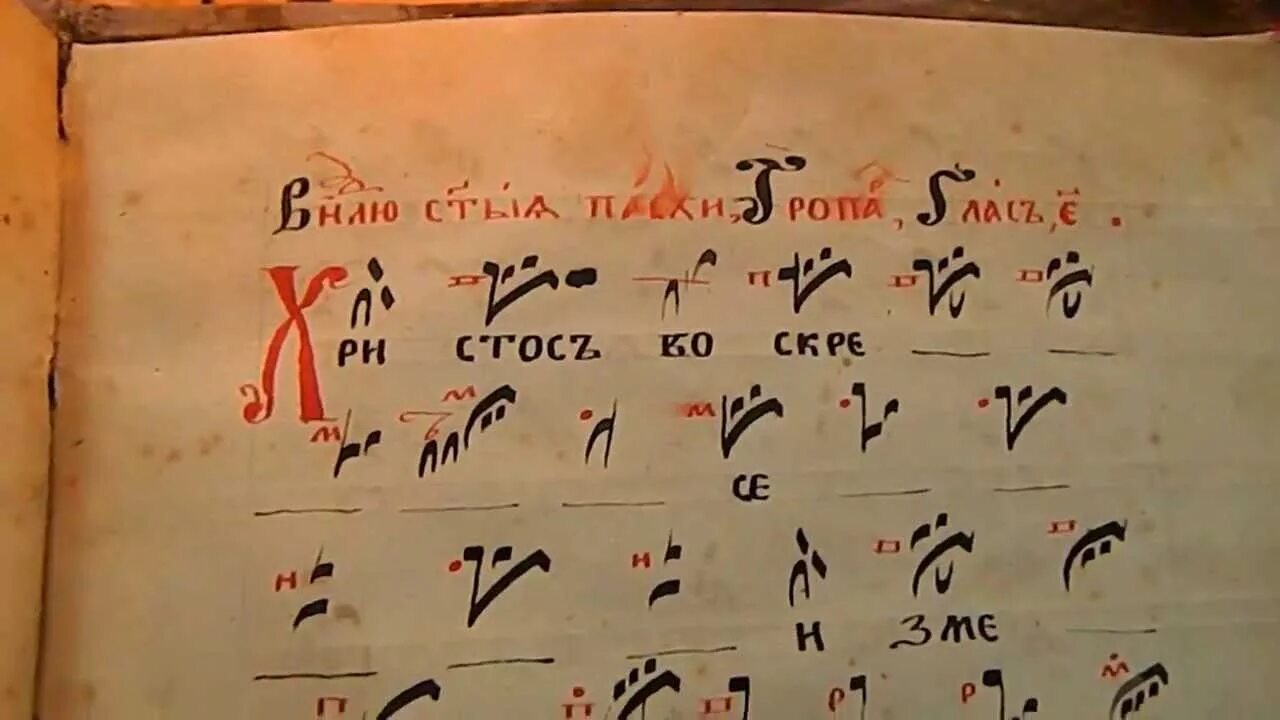 Внⷣлю ст҃ыѧ пасхи, Тропаⷬ, Гласъ, є҃.
Хри стосъ во скре
се
и зме